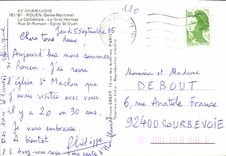 EN NORMANDIE
761/51 - ROUEN (Seine-Maritime)
La Cathédrale - Le Gros Horloge
Rue St-Romain - Eglise St-Ouen
110
Jeudi 5 Septembre 85
Chers tous deux
Aujourd'hui nous sommes
à Rouen. J'ai revu
l'église St Maclou que
j'avais visité avec vous
il y a 20 ou 30 ans.
Je vous embrasse.
A bientôt
Philippe
P.S. Avez vous
Monsieur et Madame
DEBOUT
6 rue Anatole France
92400 COURBEVOIE